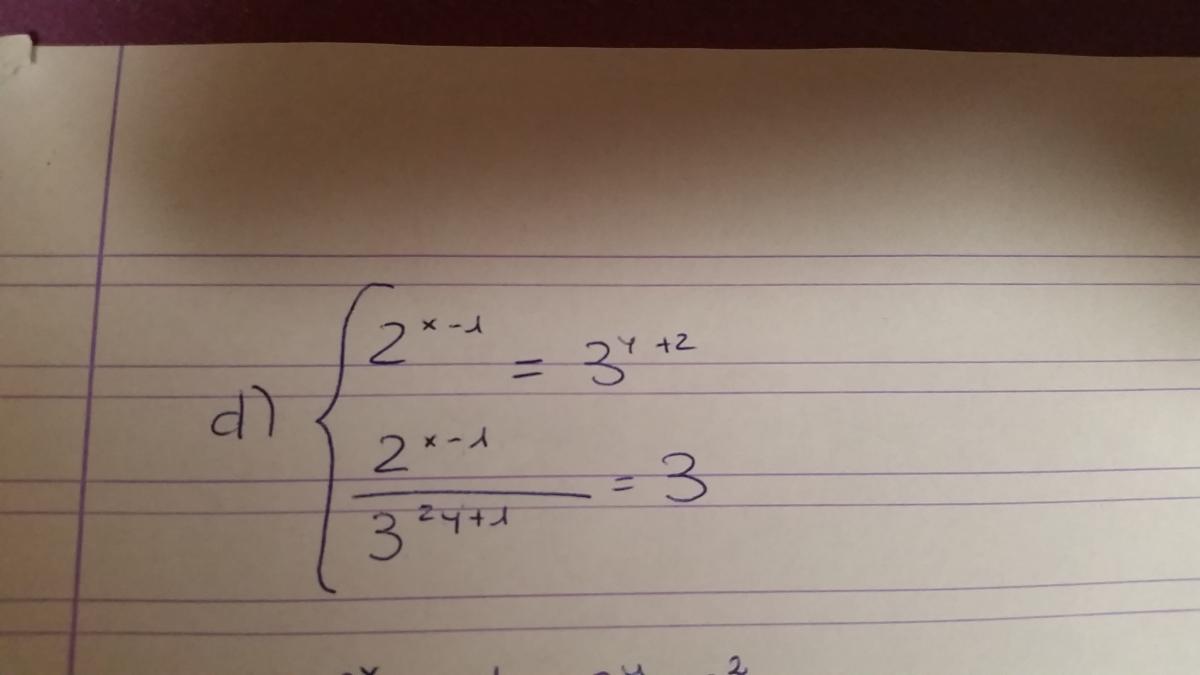 d) { 2^{x-1} = 3^{y+2}
2^{x-1} / 3^{2y+1} = 3